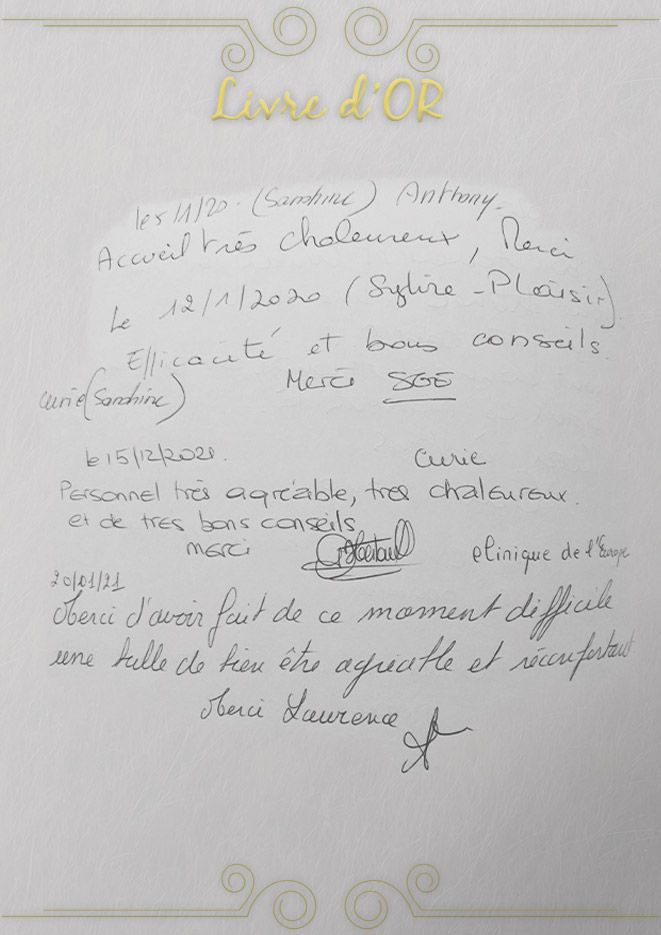 Livre d'OR
le 5/1/20. (Sandrine) Anthony.
Accueil très chaleureux, Merci
Le 12/1/2020 (Sylvie - Plaisir)
Efficacité et bons conseils.
Merci
curie (Sandrine)
le 15/12/2020. Curie
Personnel très agréable, tres chaleureux.
et de tres bons conseils
merci
clinique de l'Europe
20/01/21
Merci d'avoir fait de ce moment difficile
une bulle de bien être agréable et réconfortant
Merci Laurence